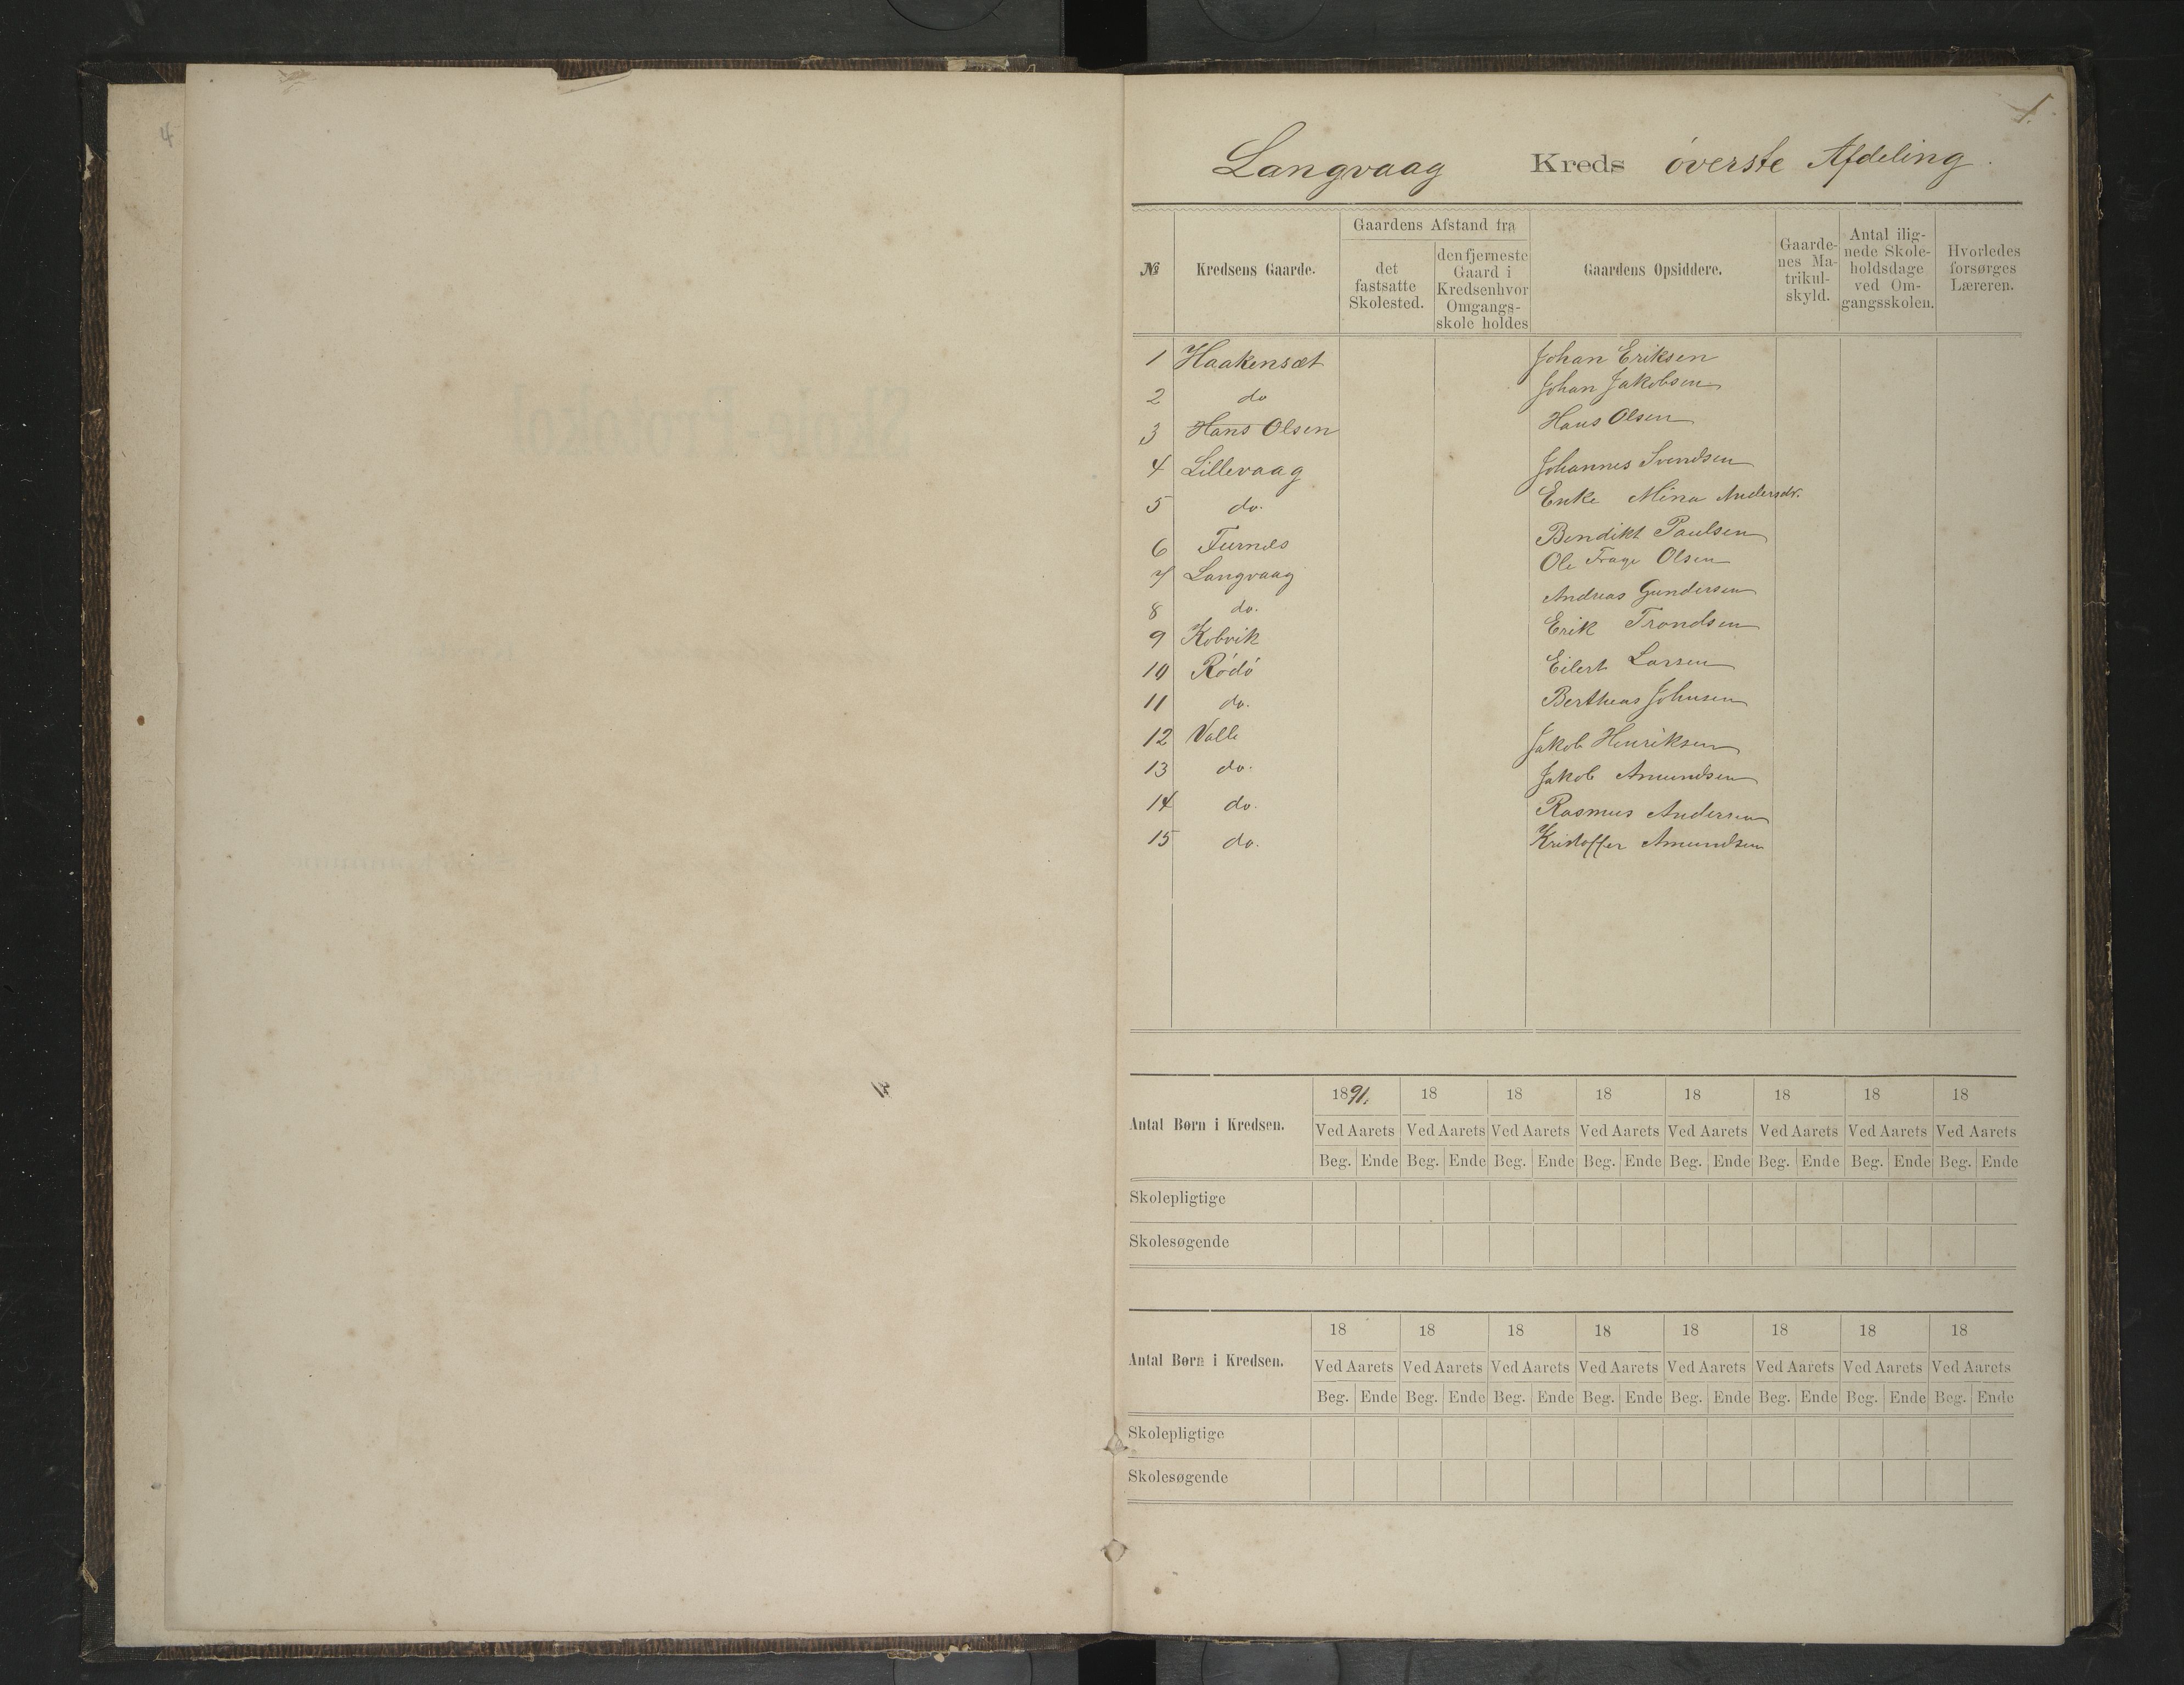 4
1.
Langvaag Kreds øverste Afdeling.
№
Kredsens Gaarde.
Gaardens Afstand fra
det fastsatte Skolested.
den fjerneste Gaard i Kredsen hvor Omgangsskole holdes
Gaardens Opsiddere.
Gaardenes Matrikulskyld.
Antal ilignede Skoleholdsdage ved Omgangsskolen.
Hvorledes forsørges Læreren.
1 Haakensæt Johan Eriksen
2 do Johan Jakobsen
3 Hans Olsen Hans Olsen
4 Lillevaag Johannes Svendsen
5 do. Enke Mina Andersdr.
6 Furnes Bendikt Paulsen
7 Langvaag Ole Olsen
8 do. Andreas Gundersen
9 Kobvik Erik Trondsen
10 Rødø Eilert Larsen
11 do. Bertheas Johnsen
12 Valle Jakob Henriksen
13 do. Jakob Amundsen
14 do. Rasmus Andersen
15 do. Kristoffer Amundsen
Antal Børn i Kredsen. 1891. 18 18 18 18 18 18 18
Ved Aarets Ved Aarets Ved Aarets Ved Aarets Ved Aarets Ved Aarets Ved Aarets Ved Aarets
Beg. Ende Beg. Ende Beg. Ende Beg. Ende Beg. Ende Beg. Ende Beg. Ende Beg. Ende
Skolepligtige
Skolesøgende
Antal Børn i Kredsen. 18 18 18 18 18 18 18 18
Ved Aarets Ved Aarets Ved Aarets Ved Aarets Ved Aarets Ved Aarets Ved Aarets Ved Aarets
Beg. Ende Beg. Ende Beg. Ende Beg. Ende Beg. Ende Beg. Ende Beg. Ende Beg. Ende
Skolepligtige
Skolesøgende